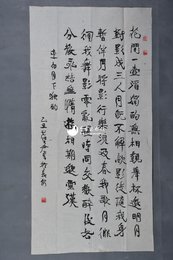 花間一壶酒独酌無相親舉杯邀明月
對影成三人月既不解飲影徒随我身
暫伴月将影行樂須及春我歌月徘
徊我舞影零亂醒時同交歡醉後各
分散永结無情遊相期邈雲漢
李白月下独酌